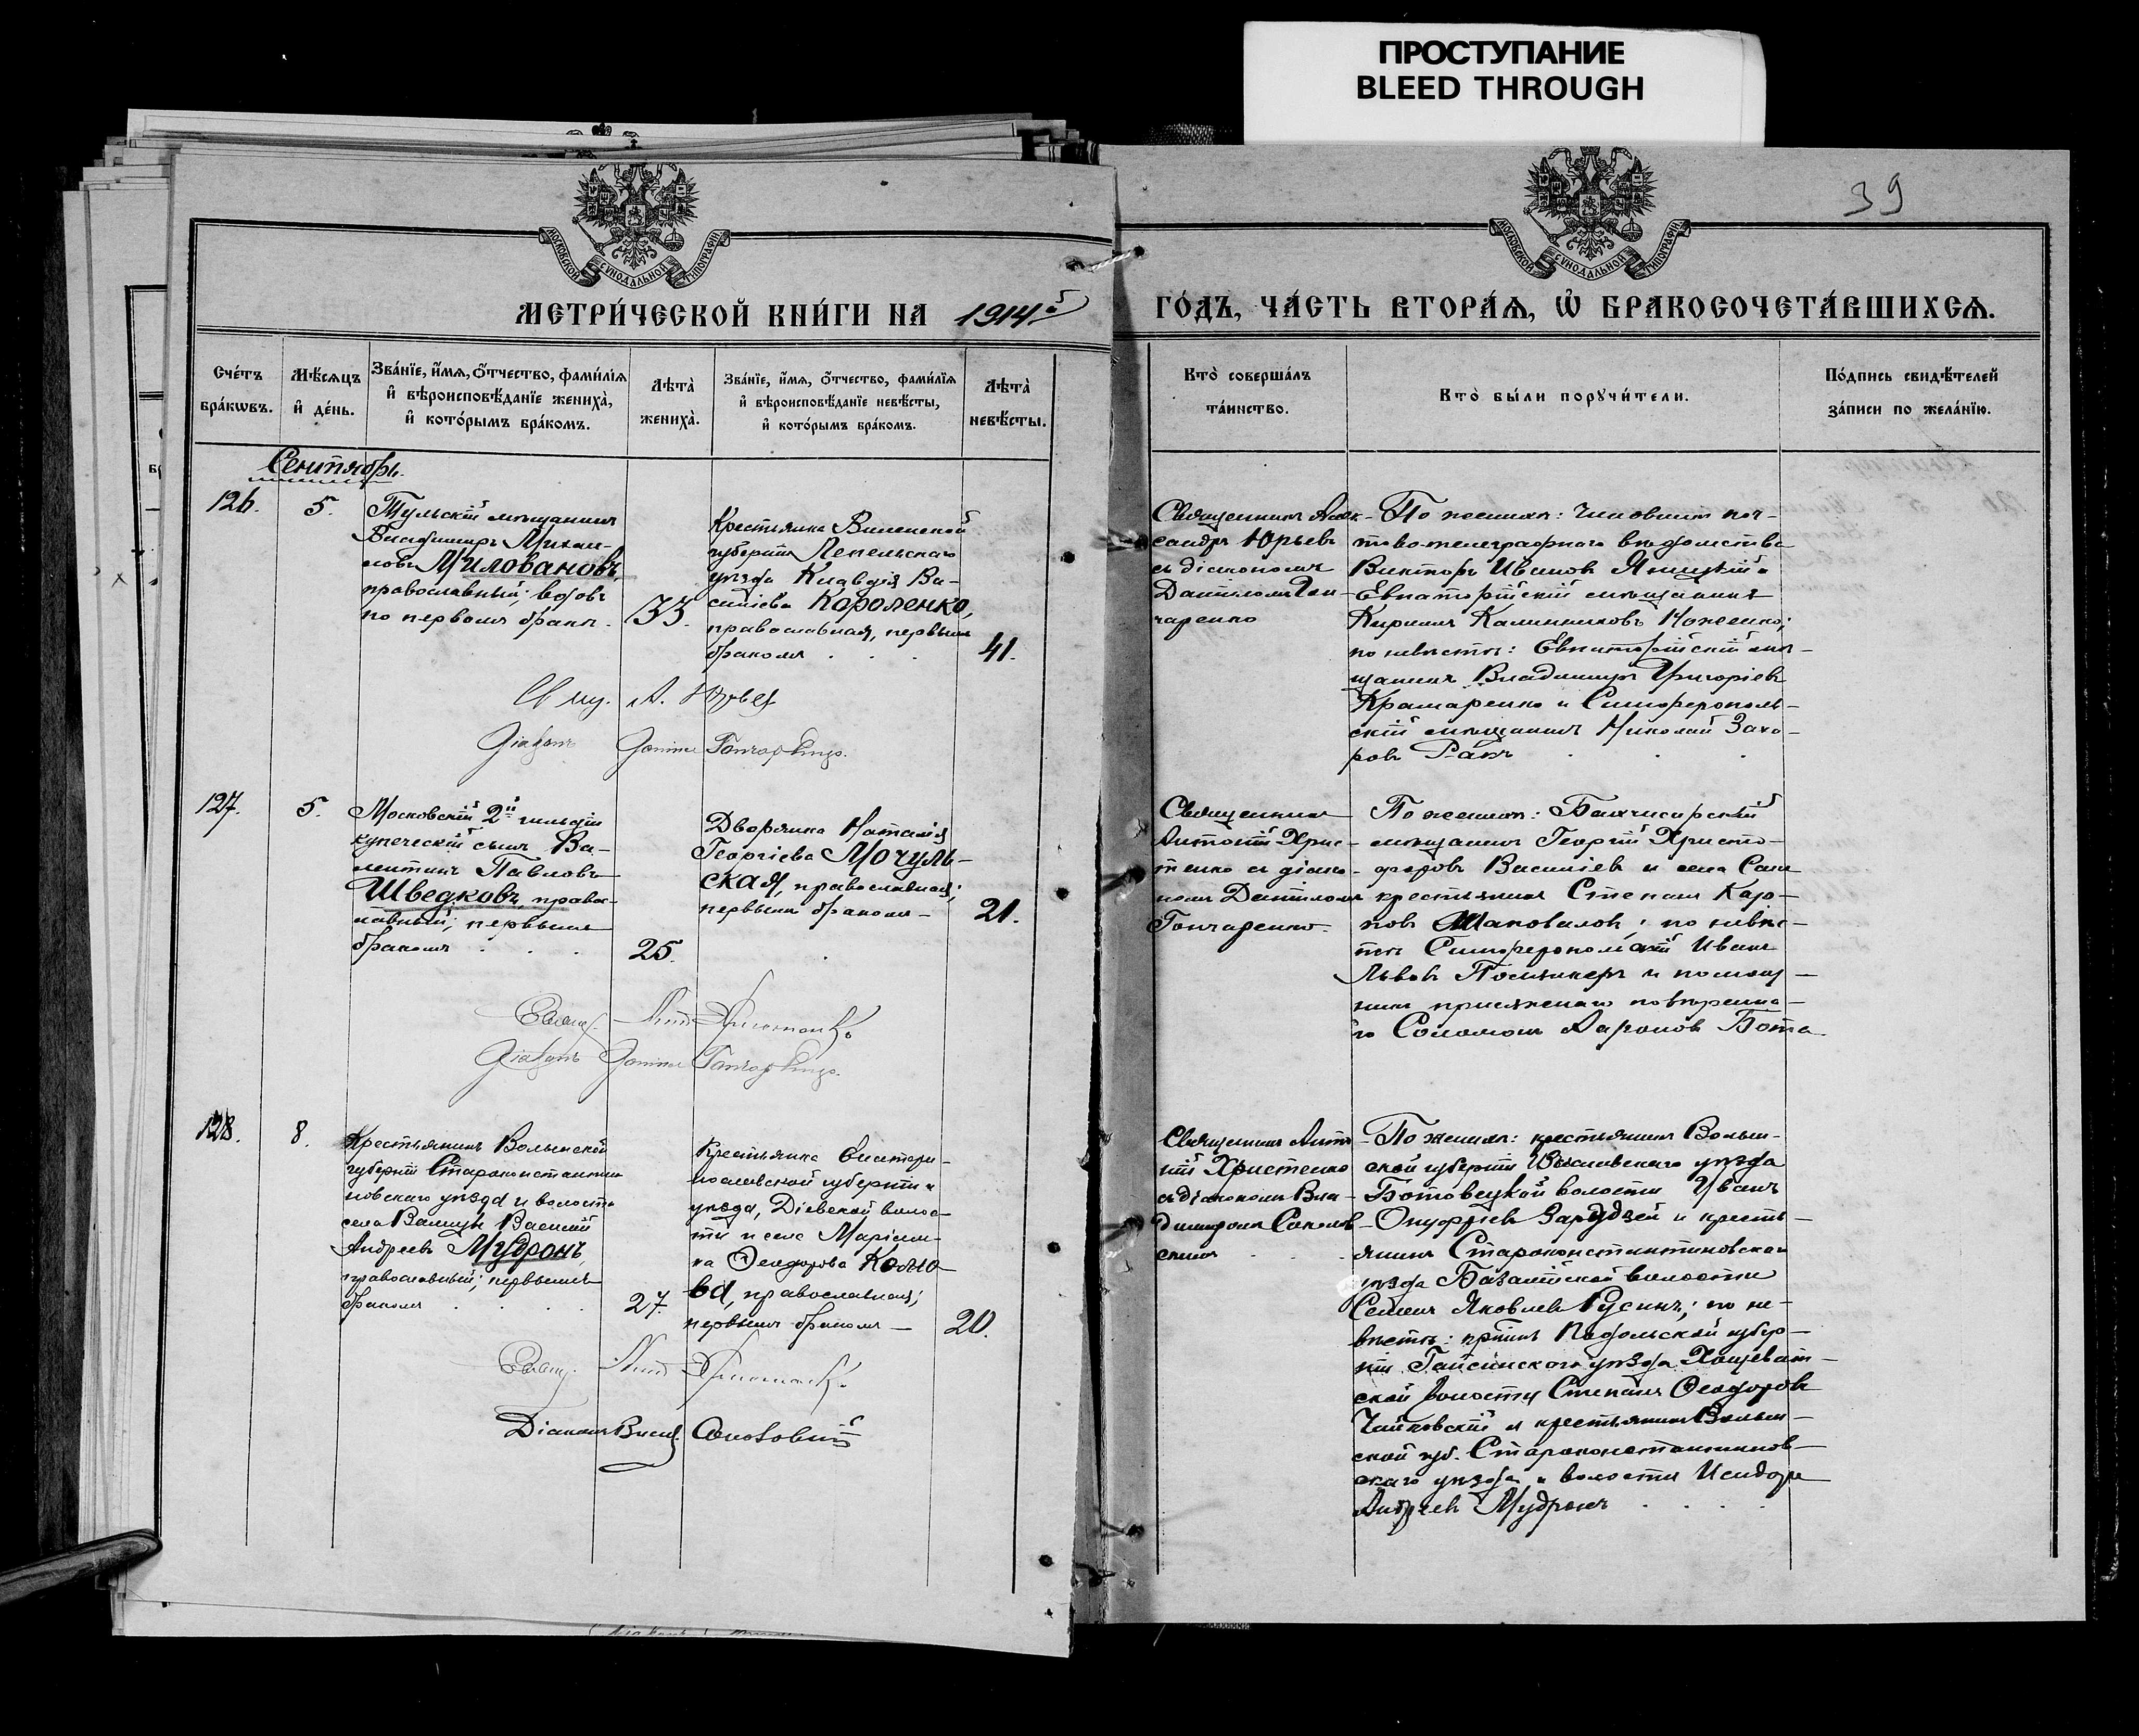 ПРОСТУПАНИЕ
BLEED THROUGH
39
МОСКОВСКОЙ СѴНОДАЛЬНОЙ ТИПОГРАФІИ
МОСКОВСКОЙ СѴНОДАЛЬНОЙ ТИПОГРАФІИ
МЕТРИ́ЧЕСКОЙ КНИ́ГИ НА 1914й ГО́ДЪ, ЧА́СТЬ ВТОРА́Ѧ, Ѡ҆ БРАКОСОЧЕТА́ВШИХСѦ.
Сче́тъ
бра́кѡвъ.
Мѣ́сѧцъ
и҆ де́нь.
Зва́нїе, и҆́мѧ, ѻ҆́тчество, фами́лїѧ
и҆ вѣроисповѣ́данїе жениха̀,
и҆ кото́рымъ бра́комъ.
Лѣта̀
жениха̀.
Зва́нїе, и҆́мѧ, ѻ҆́тчество, фами́лїѧ
и҆ вѣроисповѣ́данїе невѣ́сты,
и҆ кото́рымъ бра́комъ.
Лѣта̀
невѣ́сты.
Кто̀ соверша́лъ
та́инство.
Кто̀ бы́ли порꙋчи́тели.
По́дпись свидѣ́телей
за́писи по жела́нїю.
Сентябрь.
126.
5.
Тульскій мѣщанинъ
Владиміръ Михаи-
ловъ Миловановъ,
православный; вдовъ
по первомъ бракѣ.
33.
Крестьянка Виленской
губерніи Лепельскаго
уѣзда Клавдія Ва-
силіева Короленко,
православная, первымъ
бракомъ
41.
Священникъ Алек-
сандръ Юрьевъ
съ діакономъ
Даніиломъ Гон-
чаренко
По женихѣ: Чиновникъ поч-
тово-телеграфнаго вѣдомства
Викторъ Ивановъ Яницкій и
Евпаторійскій мѣщанинъ
Кириллъ Калинниковъ Коженко;
по невѣстѣ: Евпаторійскій мѣ-
щанинъ Владиміръ Григоріевъ
Крамаренко и Симферополь-
скій мѣщанинъ Николай Заха-
ровъ Ракъ
Свящ. А. Юрьевъ
Діаконъ Даніилъ Гончаренко.
127.
5.
Московскій 2й гильдіи
купеческій сынъ Ва-
лентинъ Павловъ
Шведковъ, право-
славный; первымъ
бракомъ
25.
Дворянка Наталія
Георгіева Мочуль-
ская, православная;
первымъ бракомъ
21.
Священникъ
Антоній Хрис-
тенко съ діако-
номъ Даніиломъ
Гончаренко.
По женихѣ: Бахчисарскій
мѣщанинъ Георгій Христо-
форовъ Василіевъ и села Саки
крестьянинъ Степанъ Кар-
повъ Шаповаловъ; по невѣс-
тѣ Симферопольскій Иванъ
Львовъ и помощ-
никъ присяжнаго повѣренна-
го Соломонъ Ароновъ Бота
Свящ. Ант. Христенко
Діаконъ Даніилъ Гончаренко.
128.
8.
Крестьянинъ Волынской
губерніи Староконстантин-
новскаго уѣзда и волости
села Василій
Андреевъ Мудронъ,
православный; первымъ
бракомъ
27.
Крестьянка Екатери-
нославской губерніи и
уѣзда, Діевской волос-
ти и села Маріан-
на Ѳеодорова Комо-
ва, православная;
первымъ бракомъ
20.
Священникъ Анто-
ній Христенко
съ діакономъ Вла-
диміромъ Соколов-
скимъ
По женихѣ: крестьянинъ Волын-
ской губерніи Изяславскаго уѣзда
волости Иванъ
Онуфріевъ Зарудзей и кресть-
янинъ Староконстантиновскаго
уѣзда Базалійской волости
Семенъ Яковлевъ Русинъ; по не-
вѣстѣ: кр-нинъ Подольской губер-
ніи Гайсинскаго уѣзда Хощеват-
ской волости Степанъ Ѳеодоровъ
Чайковскій и крестьянинъ Волын-
ской губ. Староконстантинов-
скаго уѣзда и волости Исидоръ
Андреевъ Мудронъ
Свящ. Ант. Христенко
Діаконъ Влад. Соколовскій